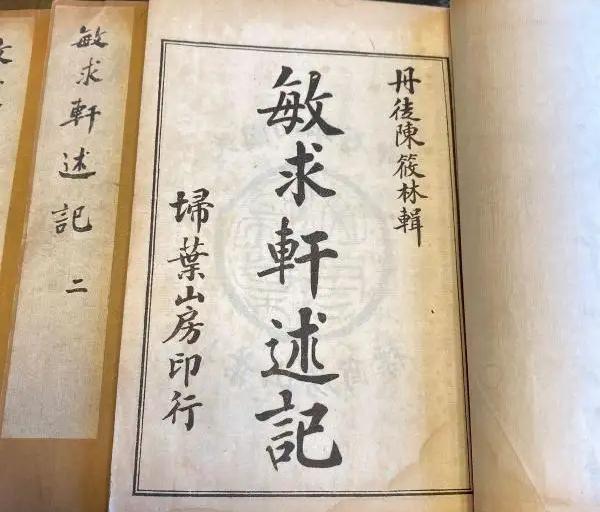 丹徒陳筱林輯
敏求軒述記
埽葉山房印行
敏求軒述記
二